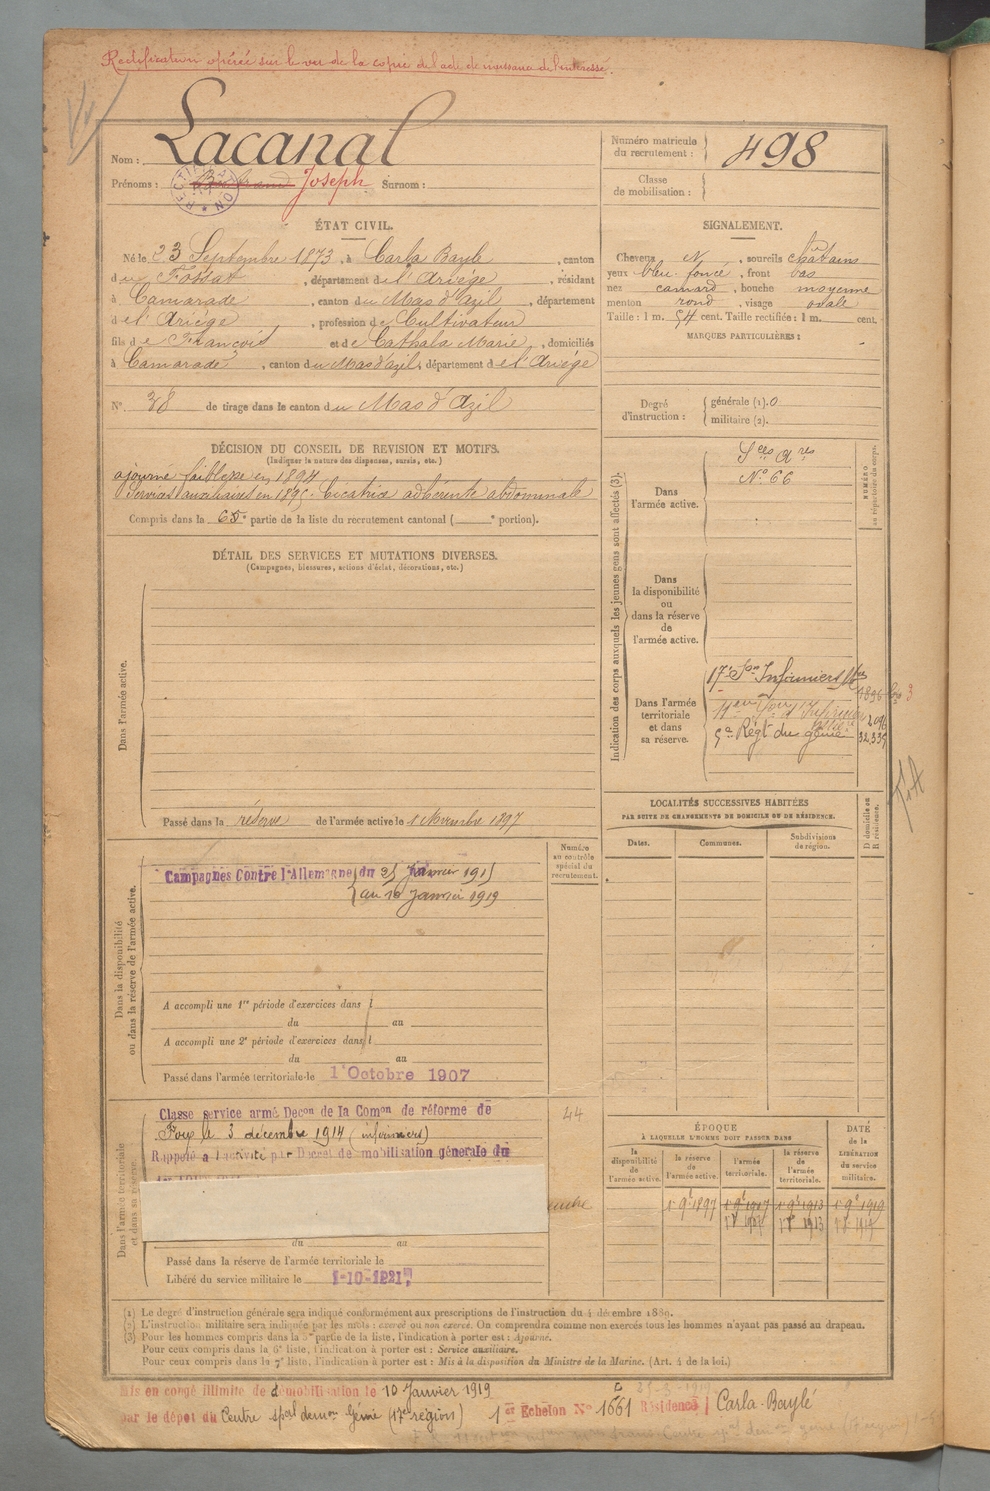 Rectification opérée sur le vu de la copie de l'acte de naissance de l'intéressé.
Nom : Lacanal
Prénoms : Bertrand Joseph Surnom :
Numéro matricule du recrutement : 498
Classe de mobilisation :
ÉTAT CIVIL.
Né le 23 Septembre 1873, à Carla Bayle, canton
du Fossat, département de l'Ariége, résidant
à Camarade, canton du Mas d'azil, département
de l'Ariége, profession de Cultivateur
fils de François et de Cathala Marie, domiciliés
à Camarade, canton du Mas d'azil, département de l'Ariége
N° 38 de tirage dans le canton du Mas d'Azil
SIGNALEMENT.
Cheveux N, sourcils châtains
yeux bleu foncé, front bas
nez camard, bouche moyenne
menton rond, visage ovale
Taille : 1 m. 54 cent. Taille rectifiée : 1 m. cent.
MARQUES PARTICULIÈRES :
Degré d'instruction : générale (1). 0
militaire (2).
DÉCISION DU CONSEIL DE REVISION ET MOTIFS.
(Indiquer la nature des dispenses, sursis, etc.)
ajourné faiblesse en 1894
Services auxiliaires en 1895. Cicatrice adhérente abdominale
Compris dans la 6e partie de la liste du recrutement cantonal ( e portion).
DÉTAIL DES SERVICES ET MUTATIONS DIVERSES.
(Campagnes, blessures, actions d'éclat, décorations, etc.)
Dans l'armée active.
Passé dans la réserve de l'armée active le 1 Novembre 1897
Indication des corps auxquels les jeunes gens sont affectés (3).
NUMÉRO au répertoire du corps.
Dans l'armée active.
Sces Ares
N° 66
Dans la disponibilité ou dans la réserve de l'armée active.
Dans l'armée territoriale et dans sa réserve.
17e Son Infirmiers Mres
1896
5e Régt du génie
32335
LOCALITÉS SUCCESSIVES HABITÉES
PAR SUITE DE CHANGEMENTS DE DOMICILE OU DE RÉSIDENCE.
Dates. Communes. Subdivisions de région.
D domicile ou R résidence.
Dans la disponibilité ou dans la réserve de l'armée active.
Numéro au contrôle spécial du recrutement.
Campagnes Contre l'Allemagne du 25 Janvier 1915
au 10 Janvier 1919
A accompli une 1re période d'exercices dans
du au
A accompli une 2e période d'exercices dans
du au
Passé dans l'armée territoriale le 1er Octobre 1907
Dans l'armée territoriale et dans sa réserve.
Classé service armé Decon de la Comon de réforme de
Foix le 3 décembre 1914 (infirmiers)
44
Rappelé à l'activité par Décret de mobilisation générale du
du au
Passé dans la réserve de l'armée territoriale le
Libéré du service militaire le 1-10-1921
ÉPOQUE
À LAQUELLE L'HOMME DOIT PASSER DANS
la disponibilité de l'armée active.
la réserve de l'armée active.
l'armée territoriale.
la réserve de l'armée territoriale.
DATE de la LIBÉRATION du service militaire.
1er 9bre 1897 1er 9bre 1907 1er 9bre 1913 1er 9bre 1919
(1) Le degré d'instruction générale sera indiqué conformément aux prescriptions de l'instruction du 4 décembre 1889.
(2) L'instruction militaire sera indiquée par les mots : exercé ou non exercé. On comprendra comme non exercés tous les hommes n'ayant pas passé au drapeau.
(3) Pour les hommes compris dans la 5e partie de la liste, l'indication à porter est : Ajourné.
Pour ceux compris dans la 6e liste, l'indication à porter est : Service auxiliaire.
Pour ceux compris dans la 7e liste, l'indication à porter est : Mis à la disposition du Ministre de la Marine. (Art. 4 de la loi.)
Mis en congé illimité de démobilisation le 10 Janvier 1919
par le dépôt du Centre spal démon Génie (17e région) 1er Echelon N° 1661 Résidence Carla-Baylé